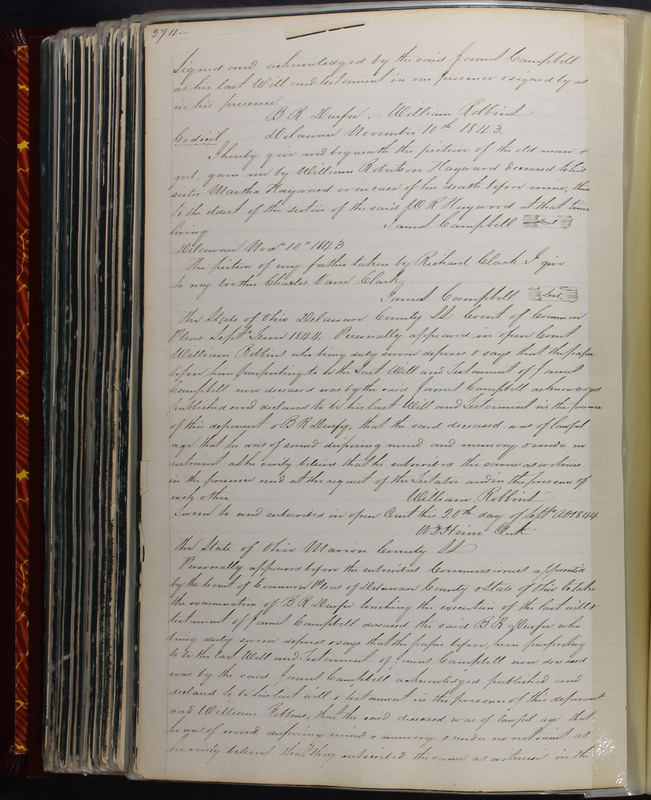 374
Signed and acknowledged by the said James Campbell
as his last Will and testament in our presence & signed by us
in his presence
B R Durfee William Robbins
Codicil Delaware November 10th 1843.
I hereby give and bequeath the picture of the old man &
girl, given me by William Robertson Hayward deceased to his
sister Martha Hayward or in case of her death before mine, then
to the eldest of the sisters of the said W R Hayward at that time
living James Campbell Seal
Delaware Nov 10th 1843
The picture of my father taken by Richard Clark I give
to my brother Charles Clark
James Campbell Seal
The State of Ohio Delaware County SS Court of Common
Pleas Sept Term 1844. Personally appeared in open Court
William Robbins who being duly sworn deposes & says that the paper
before him purporting to be the Last Will and Testament of James
Campbell now deceased was by the said James Campbell acknowledged
published and declared to be his last Will and Testament in the presence
of this deponent & B R Durfey, that the said deceased was of lawful
age that he was of sound disposing mind and memory & under no
restraint as he verily believes that he subscribed the same as a witness
in the presence and at the request of the Testator and in the presence of
each other William Robbins
Sworn to and subscribed in open Court this 20th day of Sept AD 1844
Clerk
The State of Ohio Marion County SS
Personally appeared before the subscribed Commissioner appointed
by the Court of Common Pleas of Delaware County & State of Ohio to take
the examination of B R Durfee touching the execution of the last will &
testament of James Campbell deceased the said B R Durfee who
being duly sworn deposes & says that the paper before him purporting
to be the last Will and Testament of James Campbell now deceased
was by the said James Campbell acknowledged published and
declared to be his last will & testament in the presence of this deponent
and William Robbins, that the said deceased was of lawful age that
he was of sound disposing mind & memory & under no restraint as
he verily believes that they subscribed the same as witnesses in the